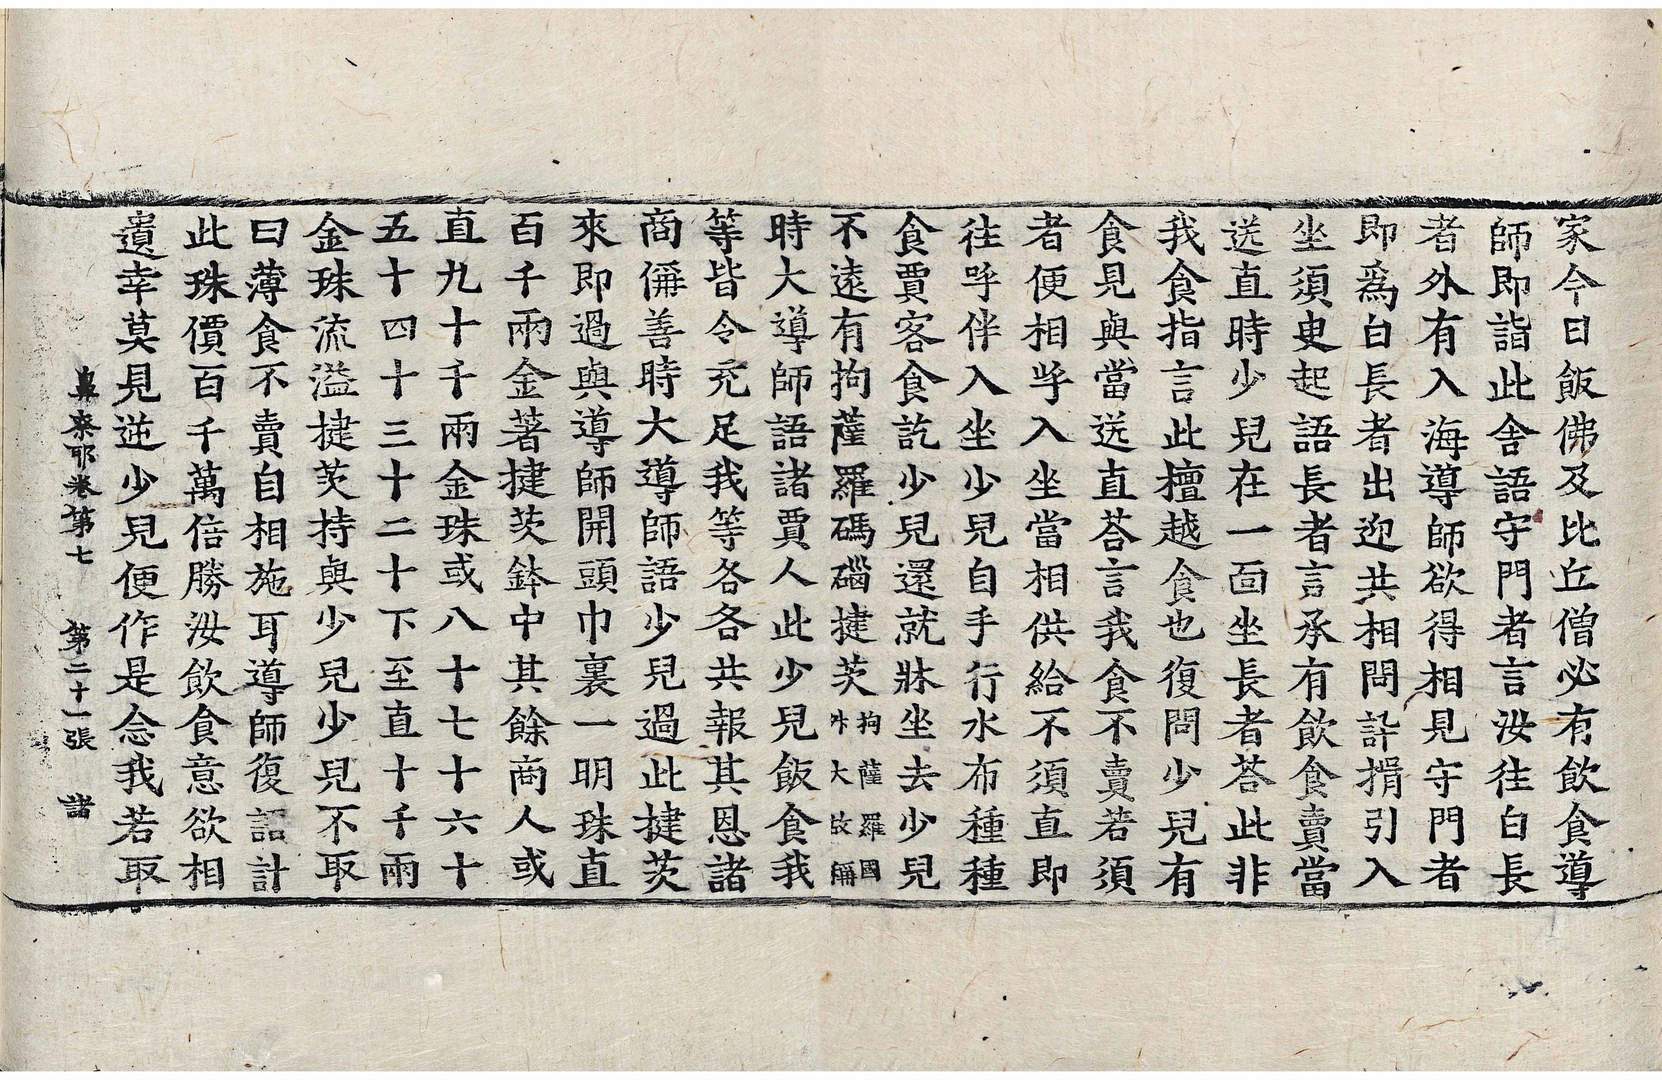 家今日飯佛及比丘僧必有飲食導
師即詣此舍語守門者言汝往白長
者外有入海導師欲得相見守門者
即爲白長者出迎共相問訊捐引入
坐須臾起語長者言承有飲食賣當
送直時少兒在一面坐長者荅此非
我食指言此檀越食也復問少兒有
食見與當送直荅言我食不賣若須
者便相呼入坐當相供給不須直即
往呼伴入坐少兒自手行水布種種
食賈客食訖少兒還就牀坐去少兒
不遠有拘薩羅碼碯揵茨拘薩羅國升大故稱
時大導師語諸賈人此少兒飯食我
等皆令充足我等各各共報其恩諸
商儞善時大導師語少兒過此揵茨
來即過與導師開頭巾裹一明珠直
百千兩金著揵茨鉢中其餘商人或
直九十千兩金珠或八十七十六十
五十四十三十二十下至直十千兩
金珠流溢揵茨持與少兒少兒不取
曰薄食不賣自相施耳導師復語計
此珠價百千萬倍勝汝飲食意欲相
遺幸莫見逆少兒便作是念我若取
鼻柰耶卷第七 第二十一張 諸